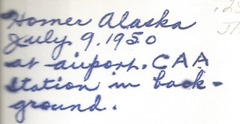 Homer Alaska
July 9, 1950
at airport. CAA
Station in back-
ground.